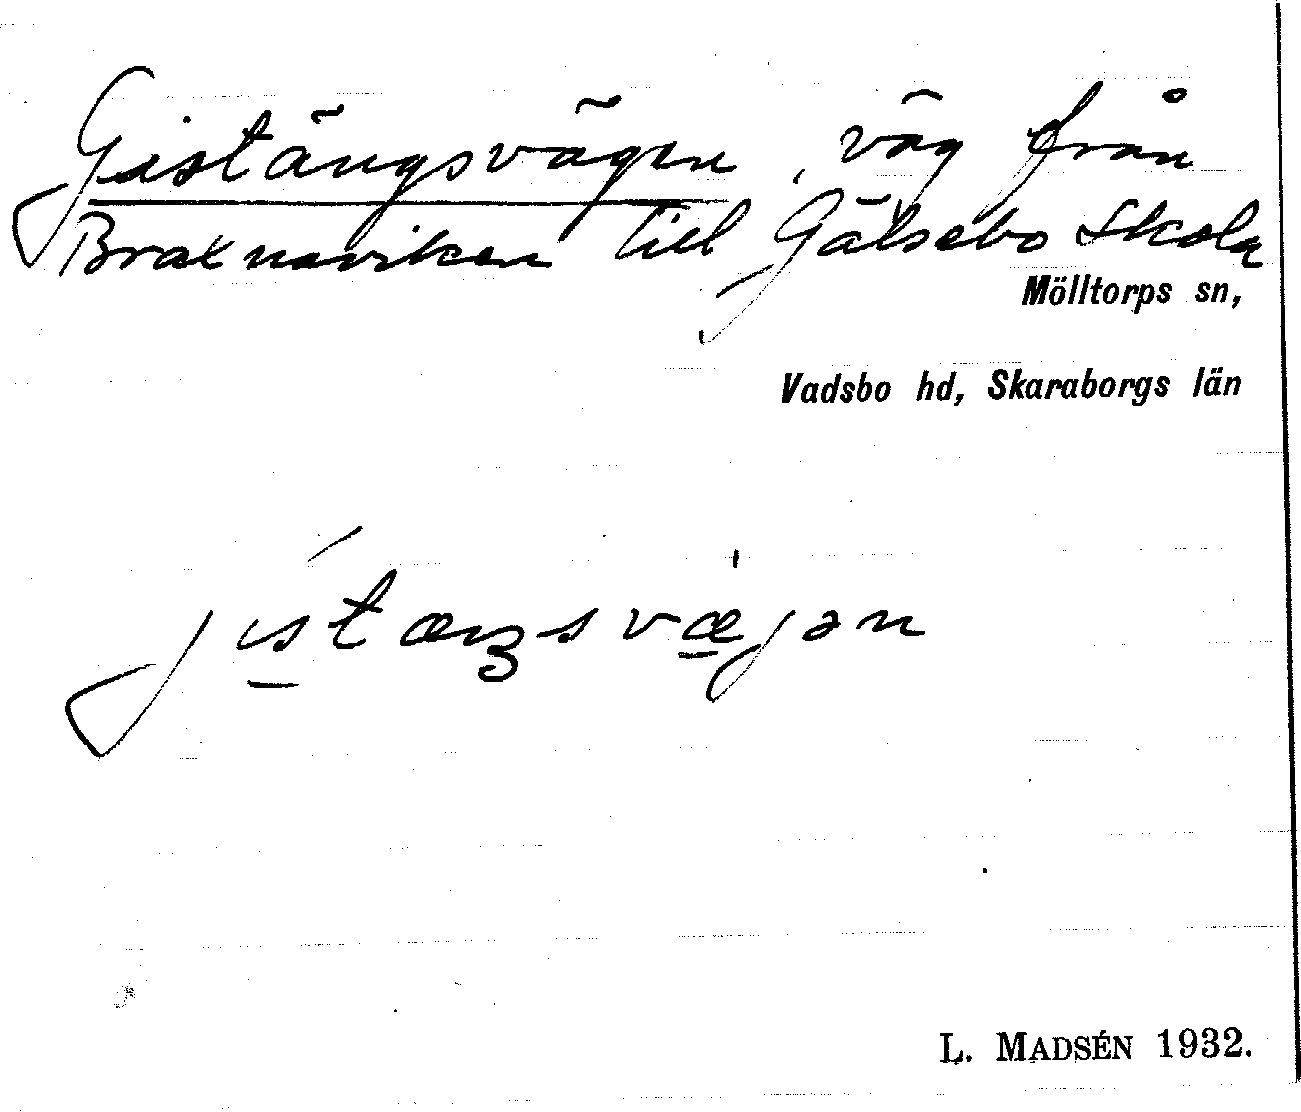 Gistängsvägen, väg från
Braxnaviken till Gälsebo Skola
Mölltorps sn,
Vadsbo hd, Skaraborgs län
L. MADSÉN 1932.